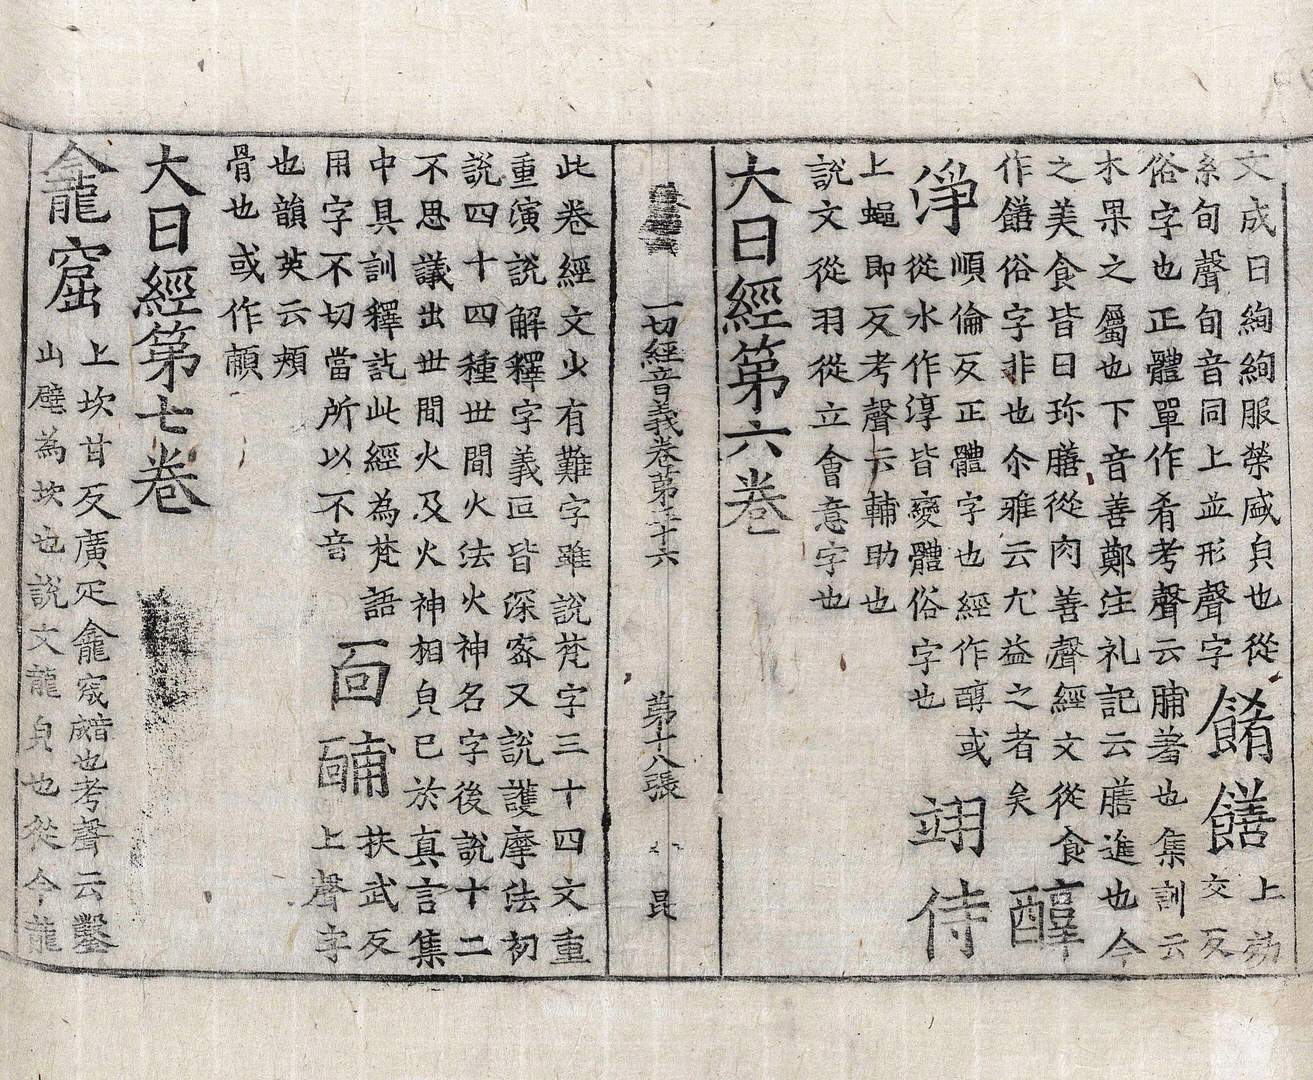 文成曰絢絢服榮咸㒵也從
糸旬聲旬音同上並形聲字餚饍上効
交反
俗字也正體單作肴考聲云脯羞也集訓云
木果之屬也下音善鄭注礼記云膳進也今
之美食皆曰珎膳從肉善聲經文從食
作饍俗字非也尒雅云尢益之者矣醇
淨順倫反正體字也經作醇或
從水作淳皆變體俗字也翊侍
上蠅即反考聲云輔助也
說文從羽從立會意字也
大日經第六卷
一切經音義卷第三十六 第十八張 昆
此卷經文少有難字雖說梵字三十四文重
重演說解釋字義亙皆深密又說護摩法初
說四十四種世間火法火神名字後說十二
不思議出世間火及火神相㒵已於真言集
中具訓釋訖此經為梵語
用字不切當所以不音靣䩉扶武反
上聲字
也韻英云頰
骨也或作䩉
大日經第七卷
龕窟上坎甘反廣疋龕㝡䶱也考聲云鑿
山壁為坎也說文龍㒵也從今龍